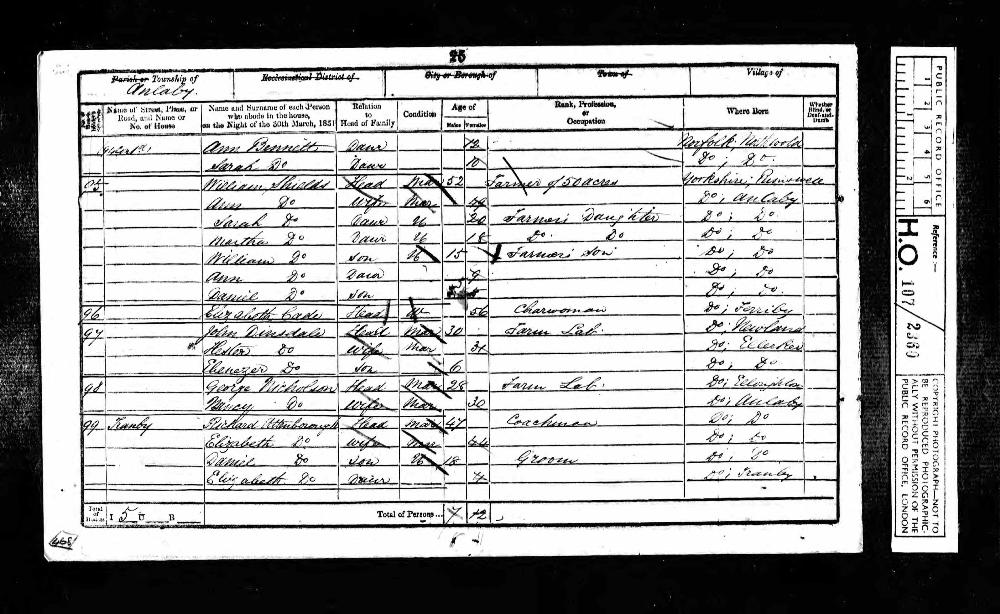 25
Parish or Township of Ecclesiastical District of City or Borough of Town of Village of
Anlaby
Name of Street, Place, or Road, and Name or No. of House Name and Surname of each Person who abode in the house, on the Night of the 30th March, 1851 Relation to Head of Family Condition Age of Males Females Rank, Profession, or Occupation Where Born Whether Blind, or Deaf-and-Dumb
Ann Bennett Daur 12 Norfolk
Sarah Do Daur 10 Do; Do
William Shields Head Mar 52 Farmer of 50 acres Yorkshire;
Ann Do Wife Mar Do; Anlaby
Sarah Do Daur U 20 Farmers Daughter Do; Do
Martha Do Daur U 18 Do Do Do; Do
William Do Son U 15 Farmers Son Do; Do
Ann Do Daur 9 Do; Do
Daniel Do Son Do; Do
96 Elizabeth Cade Head W 56 Charwoman Do; Ferriby
97 John Dinsdale Head Mar 30 Farm Lab. Do; Newland
Hester Do Wife Mar 31 Do; Ellerker
Ebenezer Do Son 6 Do; Do
98 George Nicholson Head Mar 28 Farm Lab. Do; Elloughton
Nancy Do Wife Mar 30 Do; Anlaby
99 Tranby Richard Head Mar 47 Coachman Do; Do
Elizabeth Do Wife Mar 44 Do; Do
Daniel Do Son U 18 Groom Do; Do
Elizabeth Do Daur 4 Do; Tranby
Total of Houses I 5 U B Total of Persons... 7 12
PUBLIC RECORD OFFICE
1 2 3 4 5 6
Reference:-
H.O. 107/2360
COPYRIGHT PHOTOGRAPH—NOT TO BE REPRODUCED PHOTOGRAPHICALLY WITHOUT PERMISSION OF THE PUBLIC RECORD OFFICE, LONDON